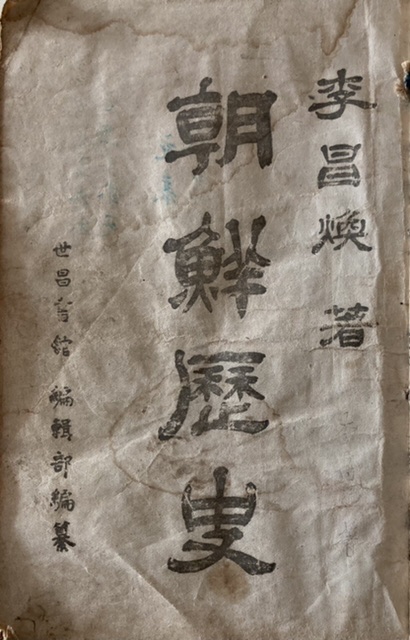 李昌煥 著
朝鮮歷史
世昌書館 編輯部編纂